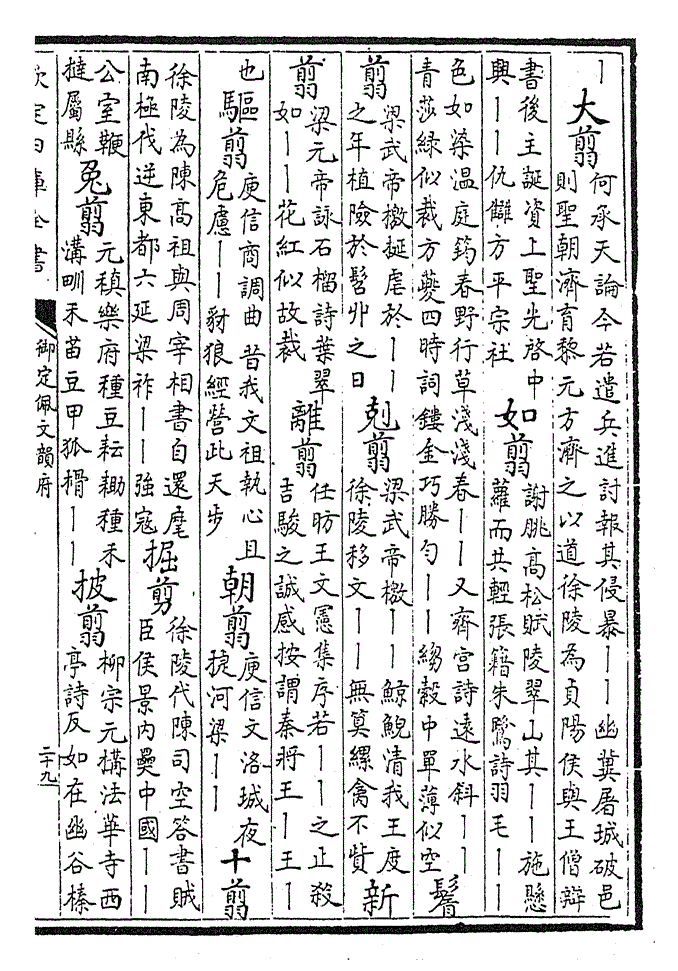 ｜大翦
何承天論今若遣兵進討報其侵暴｜｜幽冀屠城破邑
則聖朝濟育黎元方濟之以道徐陵為貞陽侯與王僧辯
書後主誕資上聖光啓中
興｜｜仇讎方平宗社
如翦
謝朓高松賦陵翠山其｜｜施懸
蘿而共輕張籍朱鷺詩羽毛｜｜
色如染温庭筠春野行草淺淺春｜｜又齊宫詩遠水斜｜｜
青莎緑似裁方夔四時詞鏤金巧勝勻｜｜縐縠中單薄似空
鬋
翦
梁武帝檄挻虐於｜｜
之年植險於髫丱之日
剋翦
梁武帝檄｜｜鯨鯢清我王度
徐陵移文｜｜無算縲禽不貲
新
翦
梁元帝詠石榴詩葉翠
如｜｜花紅似故裁
離翦
任昉王文憲集序若｜｜之止殺
吉駿之誠感按謂秦將王｜王｜
也
驅翦
庾信商調曲昔我文祖執心且
危慮｜｜豺狼經營此天步
朝翦
庾信文洛城夜
河梁｜｜
十翦
徐陵為陳高祖與周宰相書自還麾
南極伐逆東都六延梁祚｜｜強寇
掘剪
徐陵代陳司空答書賊
臣侯景内奰中國｜｜
公室鞭
撻屬縣
兔翦
元稹樂府種豆耘鋤種禾
溝甽禾苗豆甲狐榾｜｜
披翦
柳宗元構法華寺西
亭詩反如在幽谷榛
欽定四庫全書
御定佩文韻府
二十九